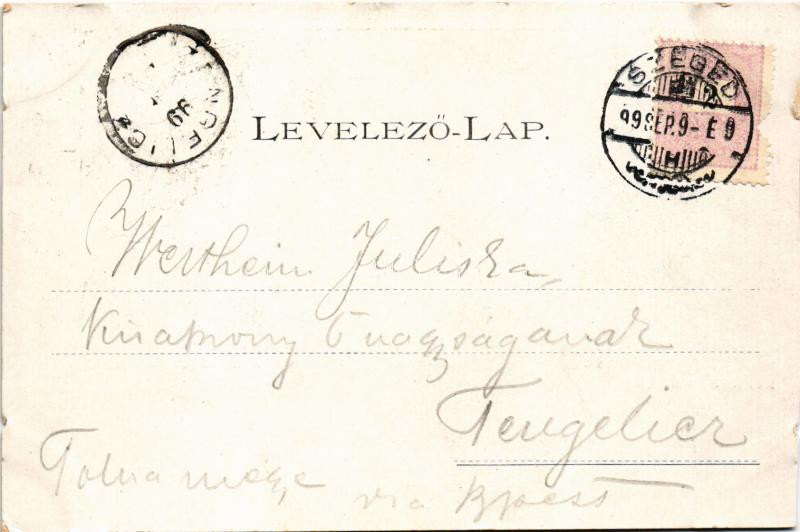 TENGELICZ
99
LEVELEZŐ-LAP.
SZEGED
99 SEP. 9- E 9
Wertheim Juliska
Kisasszony Ő nagyságának
Tengelicz
Tolna megye
via Bpest